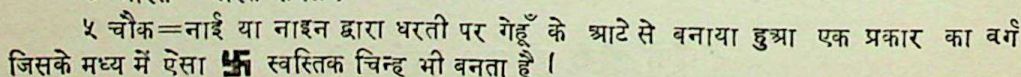 ५ चौक=नाई या नाइन द्वारा धरती पर गेहूँ के आटे से बनाया हुआ एक प्रकार का वर्ग
जिसके मध्य में ऐसा 卐 स्वस्तिक चिन्ह भी बनता है ।